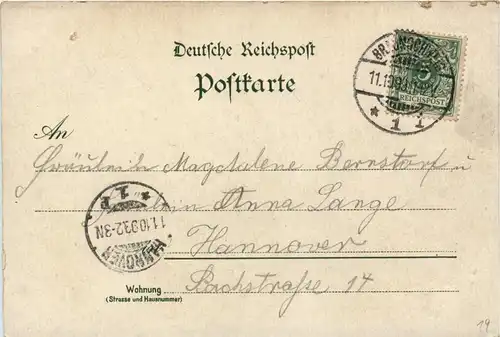 Deutsche Reichspost
Postkarte
BRAUNSCHWEIG
11.10.93
* 1 1
5
REICHSPOST
An
Fräulein Magdalene Bernstorf u
Fräulein Anna Lange
Hannover
Bachstraße 14
HANNOVER
11.10.93.2-3N
* 1 P *
Wohnung
(Strasse und Hausnummer)
19